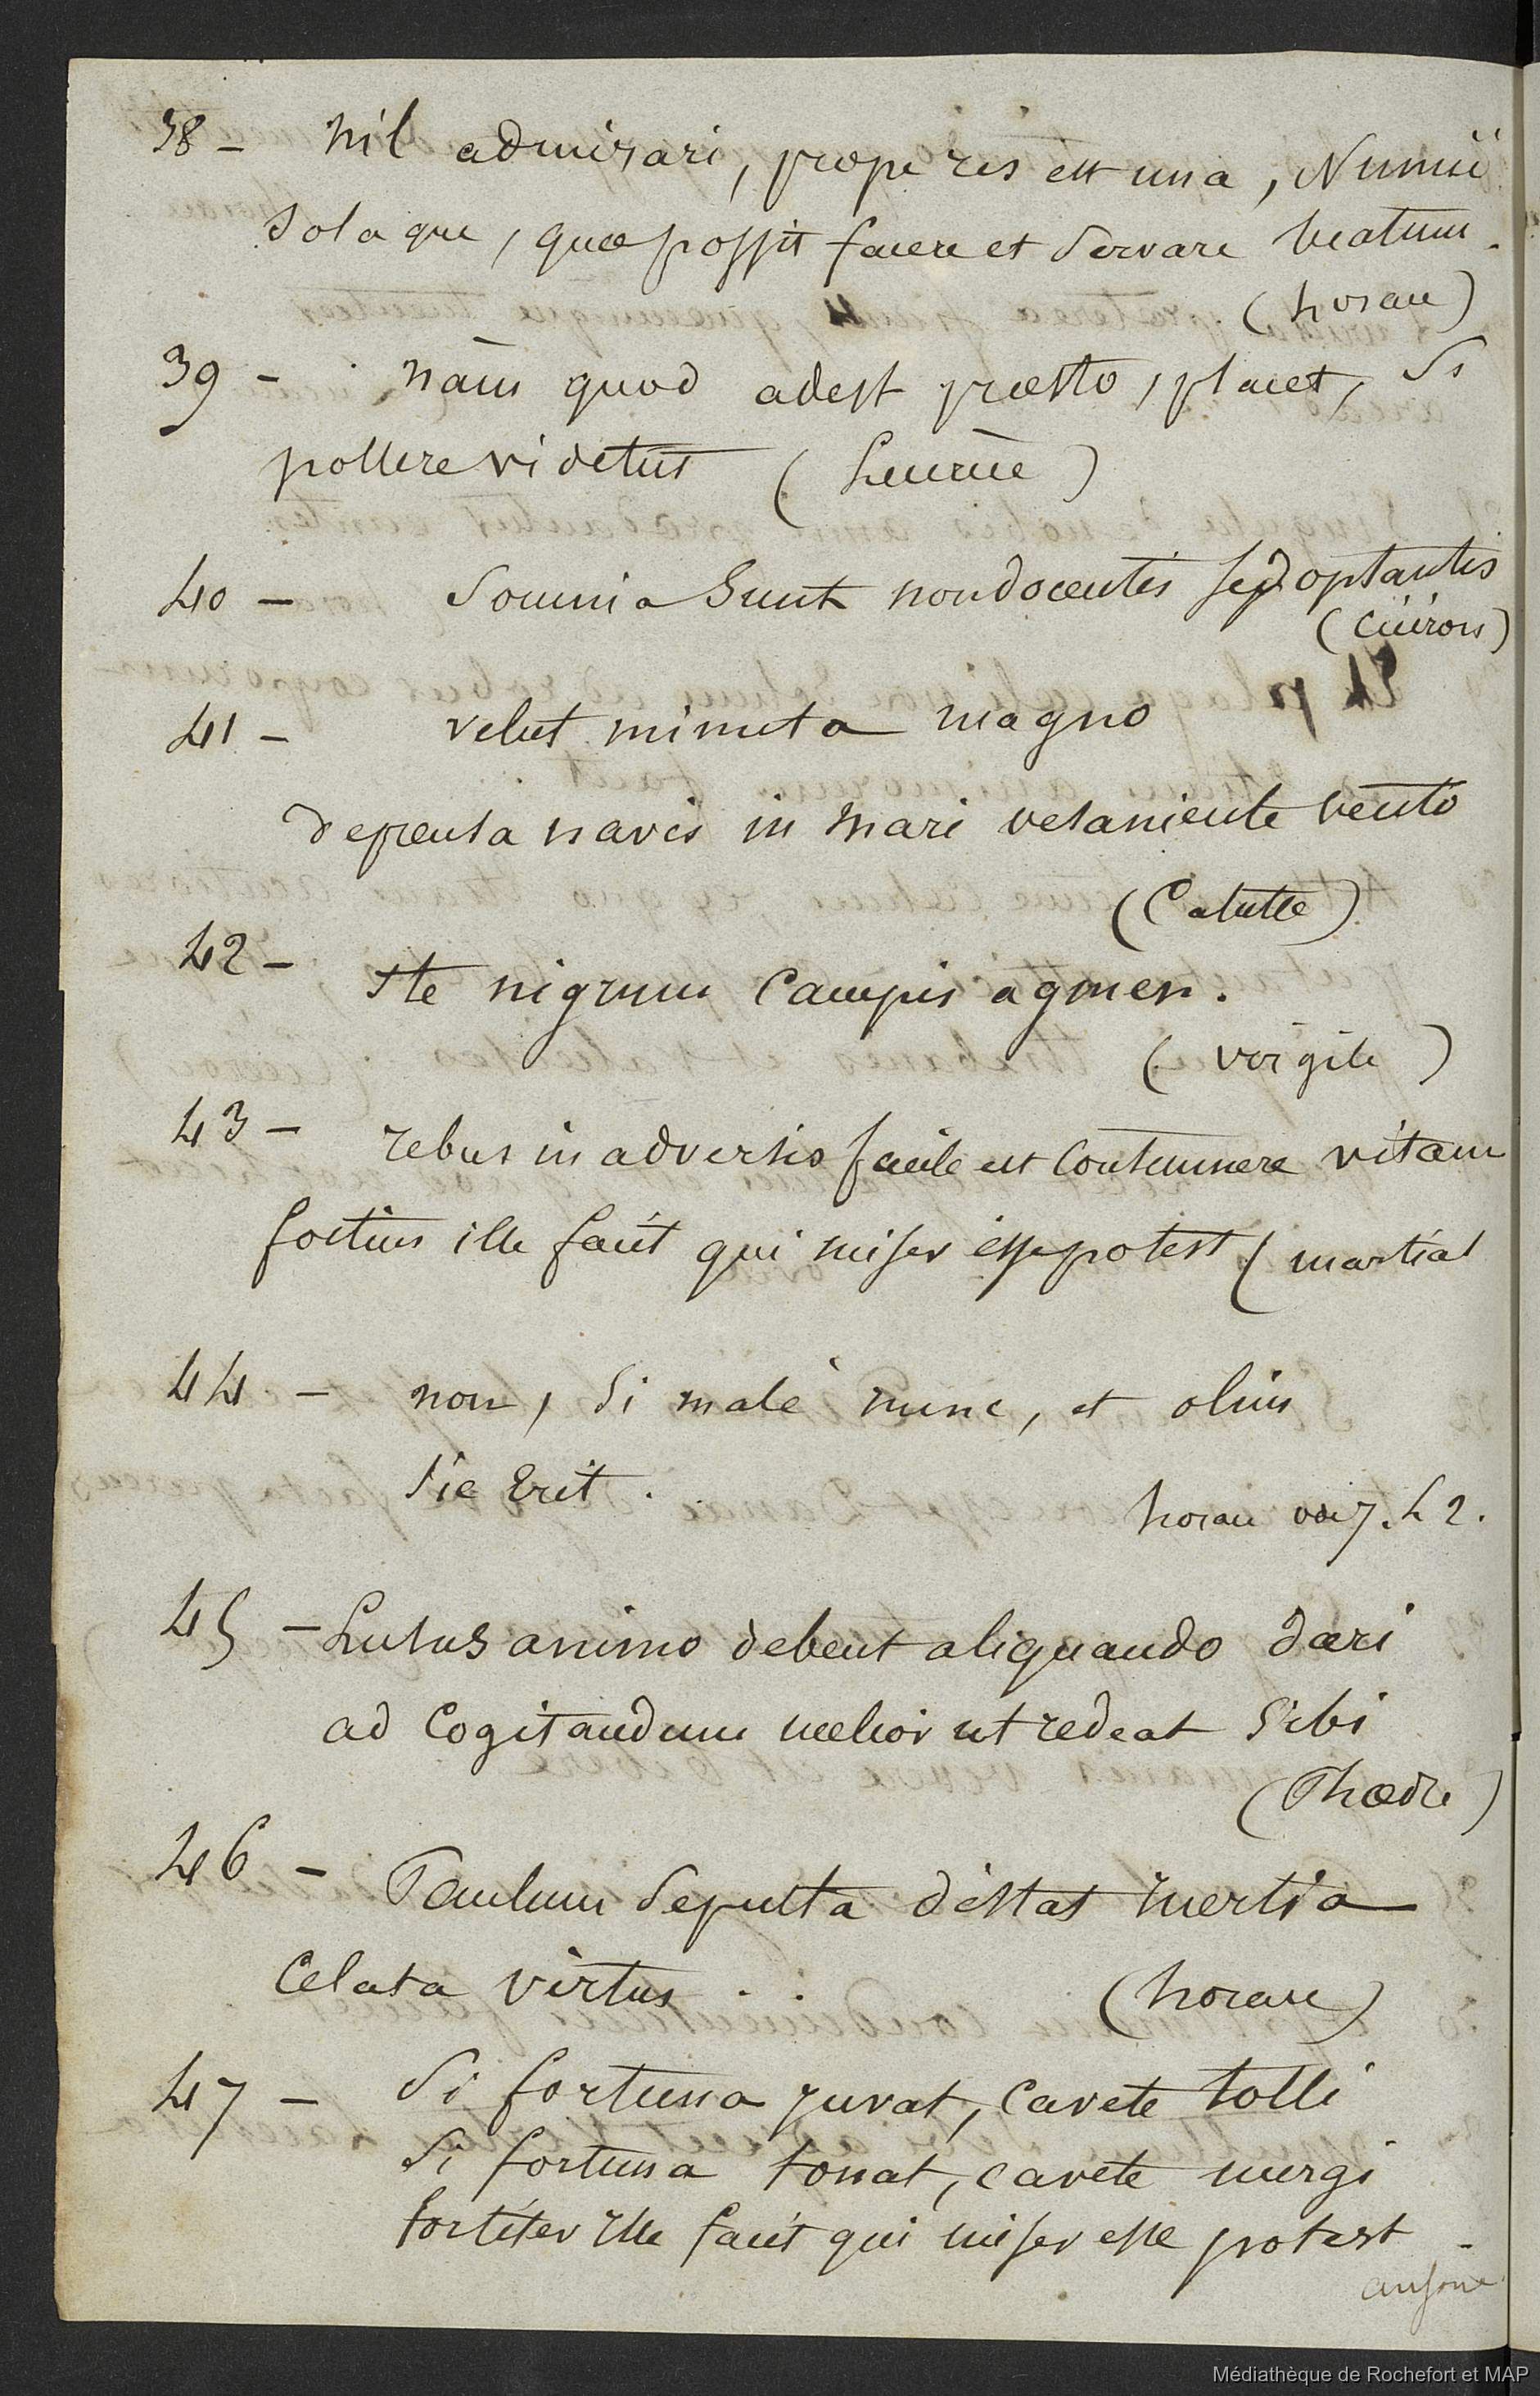 38 - nil admirari, prope res est una, Numici
solaque, quae possit facere et servare beatum.
(horace)
39 - nam quod adest praesto, placet, si
pollere videtus (Lucrèce)
40 - Somnia Sunt non docentis sed optantis
(Cicéron)
41 - velut minuta magno
deprensa navis in mari vesaniente vento
(Catulle)
42 - Ite nigrum Campis agmen.
(virgile)
43 - rebus in adversis facile est Contemnere vitam
fortius ille facit qui miser esse potest (martial
44 - non, si malè nunc, et olim
sic Erit.
horace od 7. L 2.
45 - Lusus animo debent aliquando dari
ad Cogitandum melior ut redeat Sibi
(Phoedre)
46 - Paulum Sepulta distat inertia
Celata virtus . . (horace)
47 - Si fortuna juvat, cavete tolli
Si fortuna tonat, cavete mergi
fortiter ille facit qui miser esse potest -
ausone
Médiathèque de Rochefort et MAP